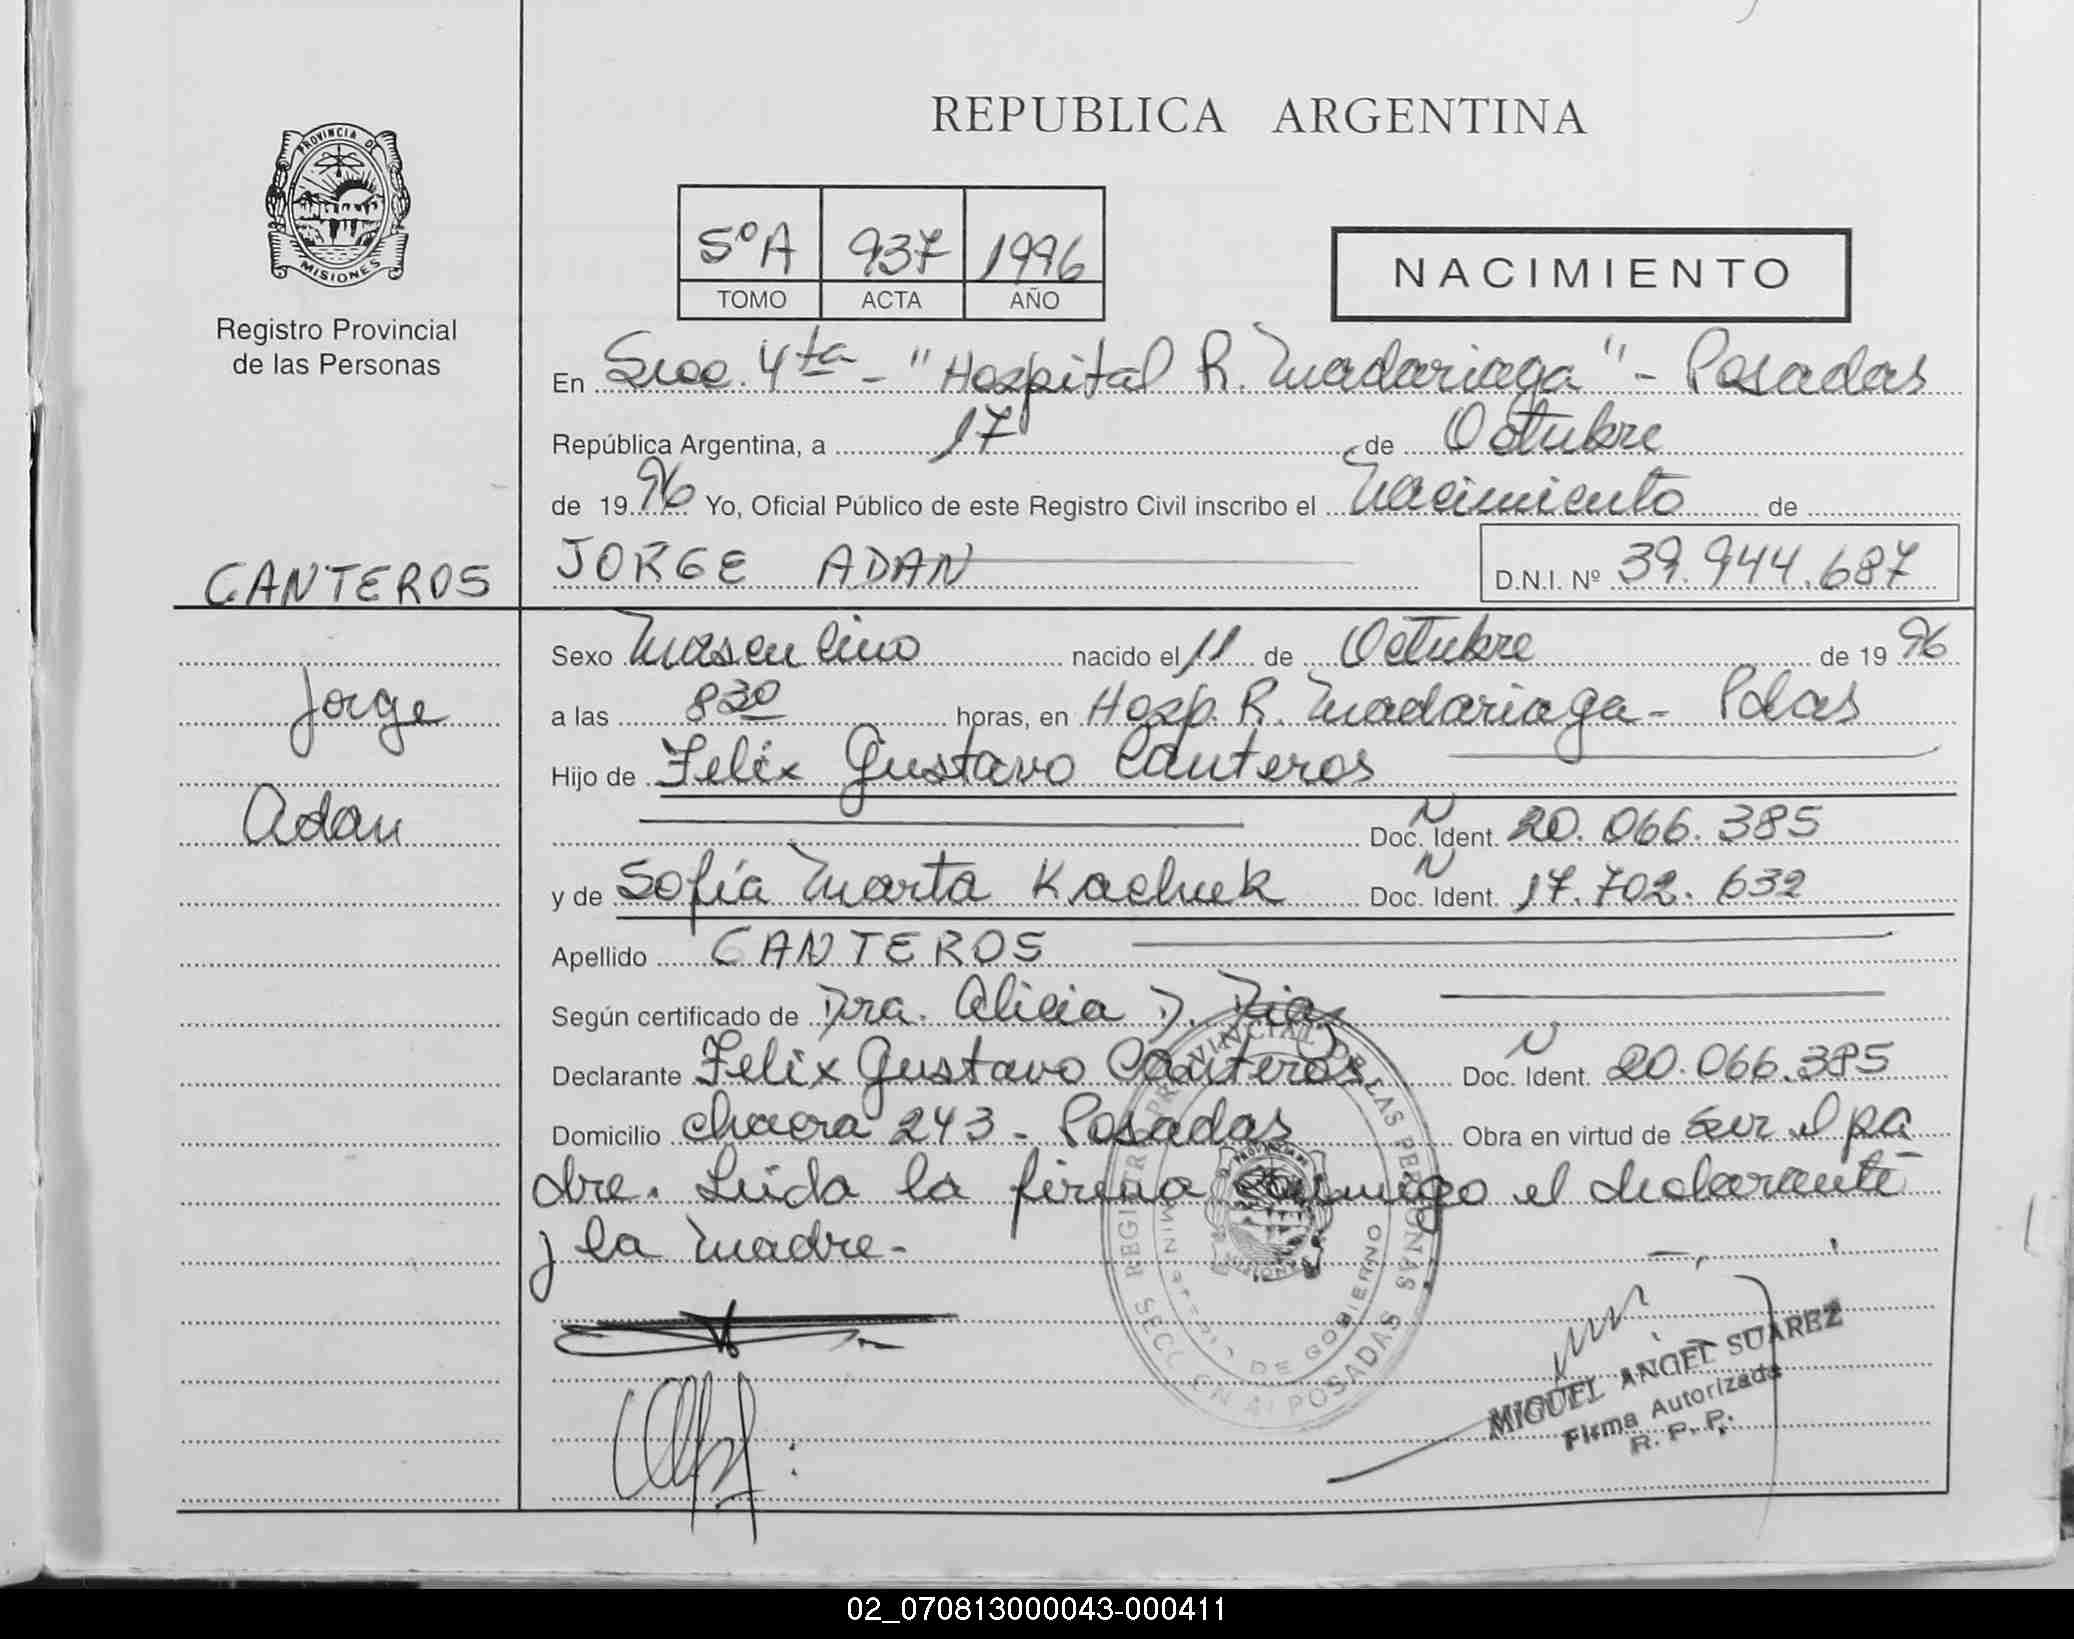 REPUBLICA ARGENTINA
PROVINCIA DE
MISIONES
Registro Provincial
de las Personas
5º A 937 1996
TOMO ACTA AÑO
NACIMIENTO
En Secc. 4ta - "Hospital R. Madariaga" - Posadas
República Argentina, a 17 de Octubre
de 1996 Yo, Oficial Público de este Registro Civil inscribo el Nacimiento de
CANTEROS
JORGE ADAN D.N.I. Nº 39.944.687
Jorge
Adan
Sexo Masculino nacido el 11 de Octubre de 1996
a las 8 30 horas, en Hosp. R. Madariaga - Pdas
Hijo de Felix Gustavo Canteros
N Doc. Ident. 20.066.385
y de Sofía Marta Kachuk N Doc. Ident. 17.702.632
Apellido CANTEROS
Según certificado de Dra. Alicia D. Diaz
Declarante Felix Gustavo Canteros N Doc. Ident. 20.066.385
Domicilio chacra 243 - Posadas Obra en virtud de ser el pa
dre. Leida la firma conmigo el declarante
y la madre -
REGISTRO PROVINCIAL DE LAS PERSONAS
MINISTERIO DE GOBIERNO
POSADAS
MIGUEL ANGEL SUAREZ
Firma Autorizada
R. P. P.
02_070813000043-000411